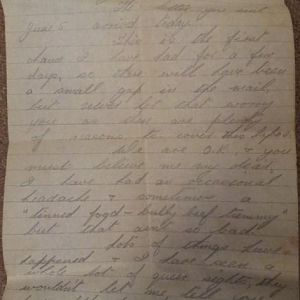 The ... you sent
June 5 arrived today.
This is the first
chance I have had for a few
days, so there will have been
a small gap in the mail,
but never let that worry
you as there are plenty
of reasons, to cover this lapse.
We are O.K. & you
must believe me my dear.
I have had an occasional
headache & sometimes a
"tinned food - bully beef tummy"
but that ain't so bad.
Lots of things have
happened & I have seen a
whole lot of queer sights, they
wouldn't let me tell you